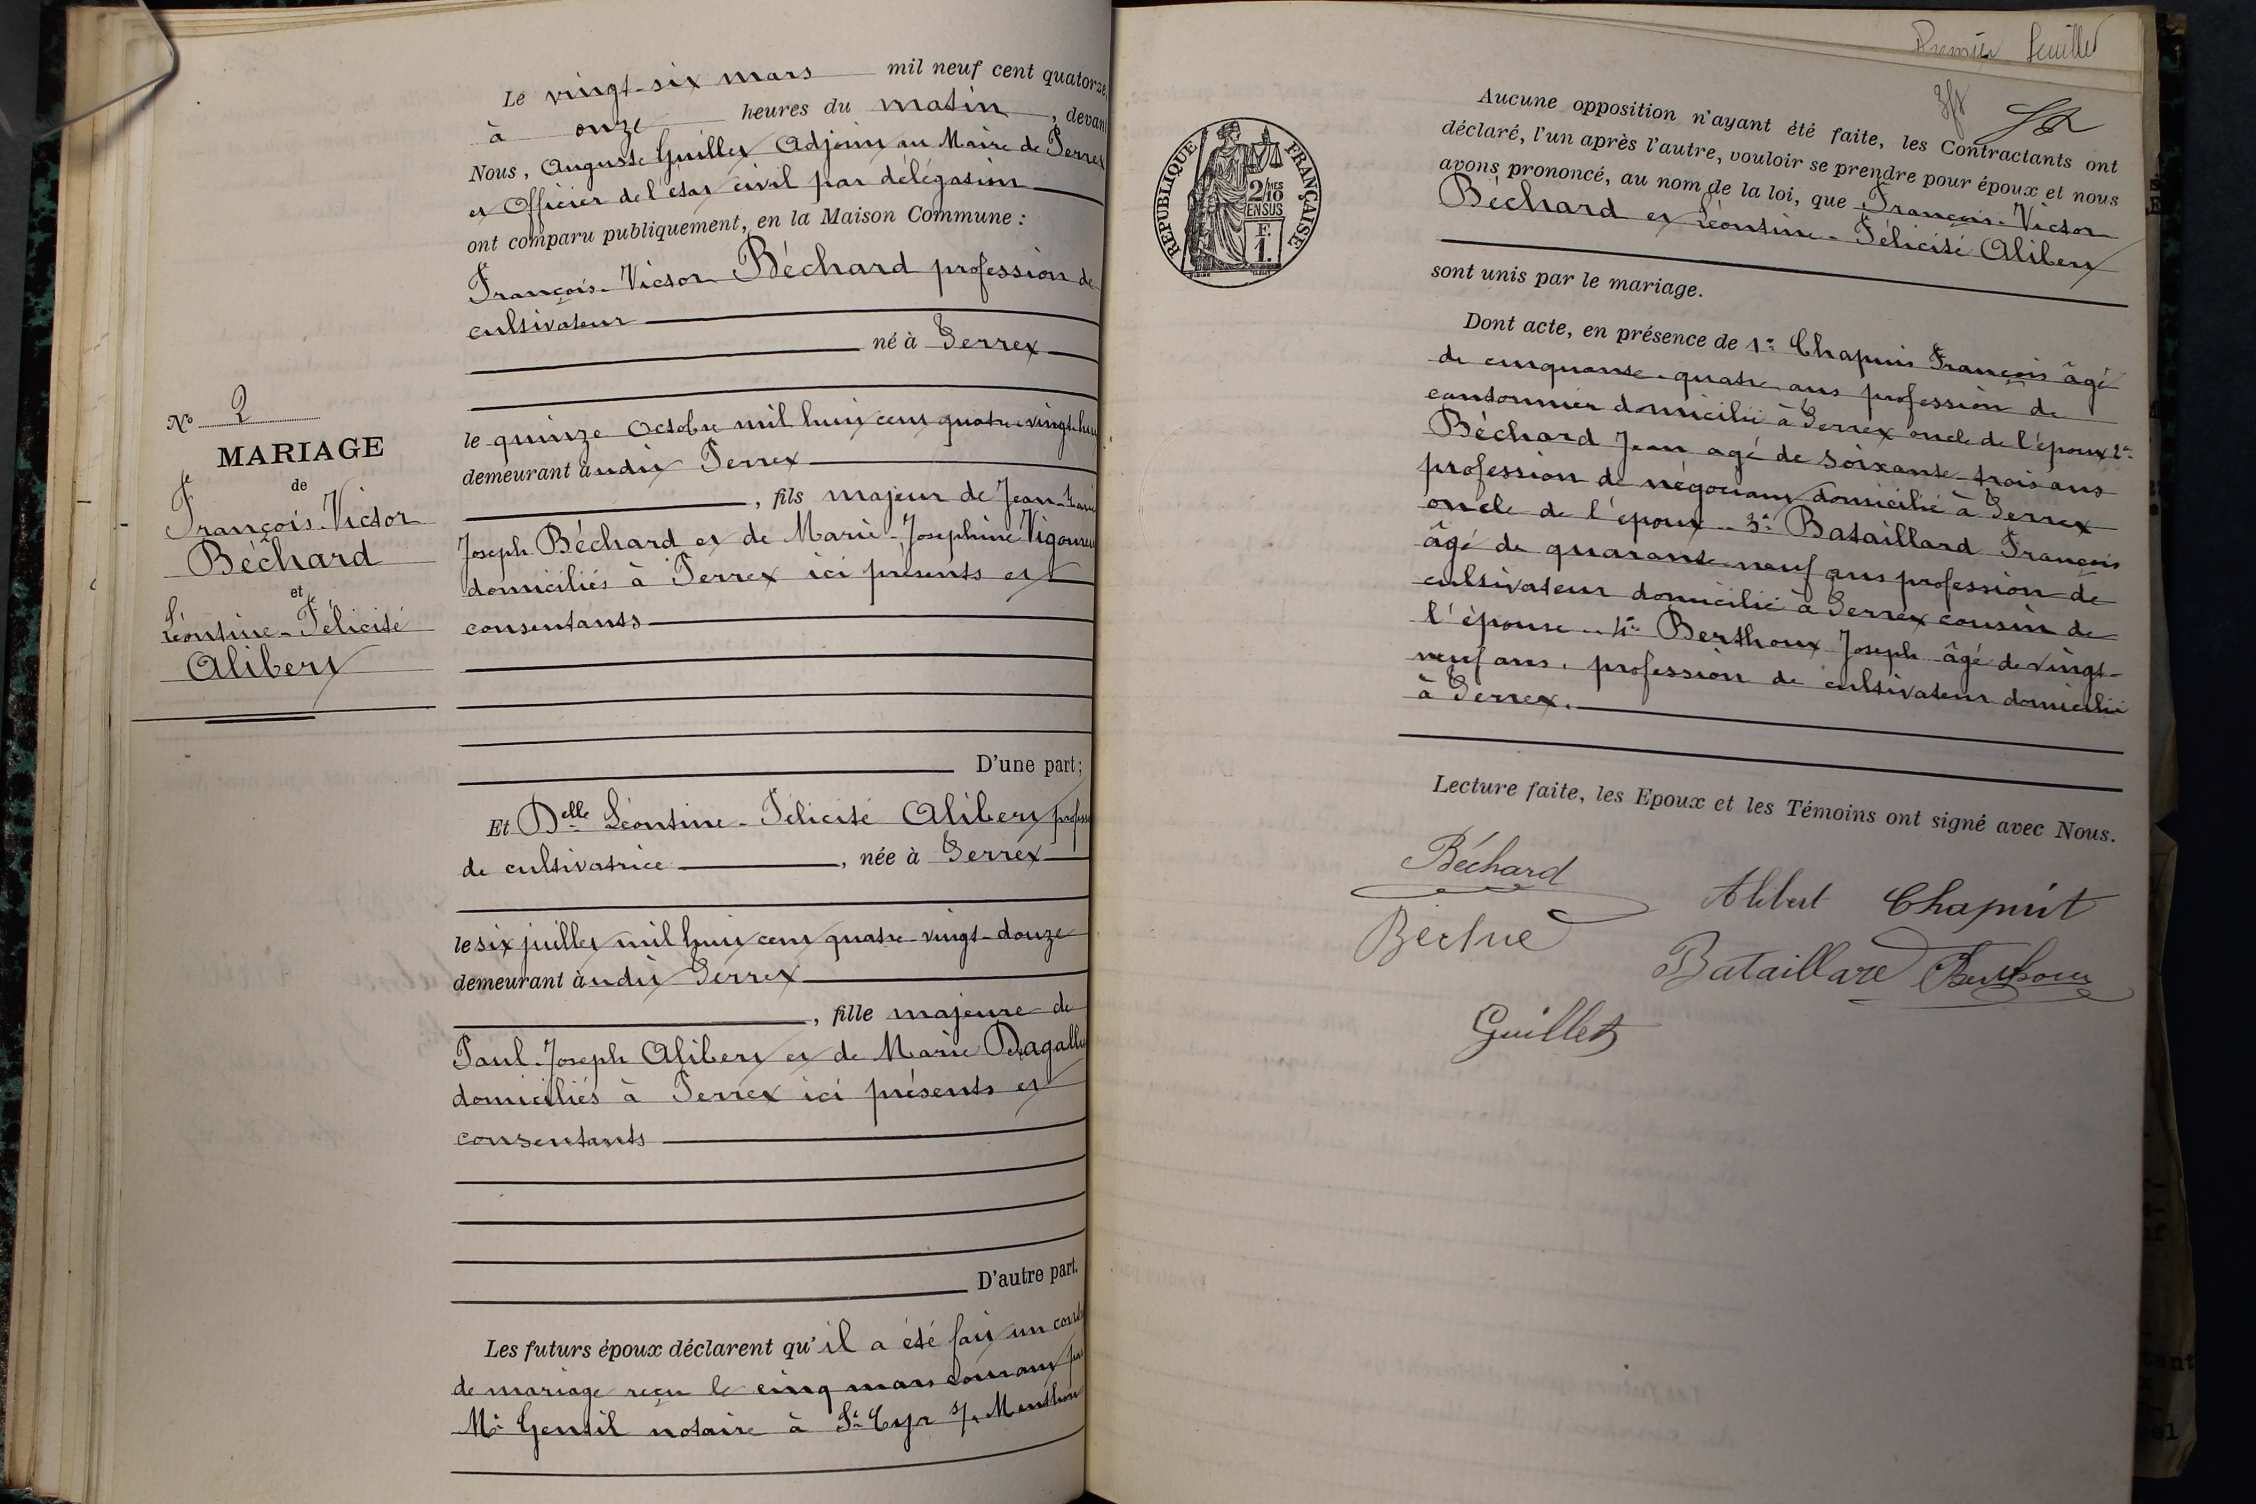 Le vingt-six mars mil neuf cent quatorze,
à onze heures du matin, devant
Nous, Auguste Guillet Adjoint au Maire de Perrex
et Officier de l'état civil par délégation
ont comparu publiquement, en la Maison Commune :
François-Victor Béchard profession de
cultivateur
né à Perrex
le quinze Octobre mil huit cent quatre-vingt-huit
demeurant àudit Perrex
, fils majeur de Jean-Marie
Joseph Béchard et de Marie-Josephine Vigoureux
domiciliés à Perrex ici présents et
consentants
D'une part;
Et Delle Léontine-Félicité Alibert profession
de cultivatrice, née à Perrex
le six juillet mil huit cent quatre-vingt-douze
demeurant àudit Perrex
, fille majeure de
Paul-Joseph Alibert et de Marie
domiciliés à Perrex ici présents et
consentants
D'autre part.
Les futurs époux déclarent qu'il a été fait un contrat
de mariage reçu le cinq mars courant par
Me Gentil notaire à St Cyr s/ Menthon
No 2
MARIAGE
de
François-Victor
Béchard
et
Léontine-Félicité
Alibert
Premier feuillet
RÉPUBLIQUE FRANÇAISE
2/10 MES
EN SUS
F.
1.
Aucune opposition n'ayant été faite, les Contractants ont
déclaré, l'un après l'autre, vouloir se prendre pour époux et nous
avons prononcé, au nom de la loi, que François-Victor
Béchard et Léontine-Félicité Alibert
sont unis par le mariage.
Dont acte, en présence de 1er Chapuis François âgé
de cinquante-quatre ans profession de
cantonnier domicilié à Perrex oncle de l'époux 2e
Béchard Jean agé de soixante-trois ans
profession de négociant domicilié à Perrex
oncle de l'époux - 3e Bataillard François
âgé de quarante-neuf ans profession de
cultivateur domicilié à Perrex cousin de
l'épouse - 4e Berthoux Joseph âgé de vingt-
neuf ans, profession de cultivateur domicilié
à Perrex.
Lecture faite, les Epoux et les Témoins ont signé avec Nous.
Béchard
Alibert Chapuit
Bataillard Berthoux
Guillet